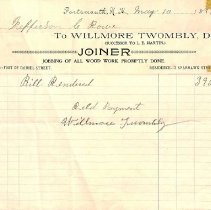 Portsmouth, N.H., May 10 18
Jefferson C. Rowe
To WILLMORE TWOMBLY, D
(SUCCESSOR TO J. S. MARTIN.)
JOINER
JOBBING OF ALL WOOD WORK PROMPTLY DONE.
FOOT OF DANIEL STREET. RESIDENCE:
Bill Rendered 390
Recd Payment
Willmore Twombly